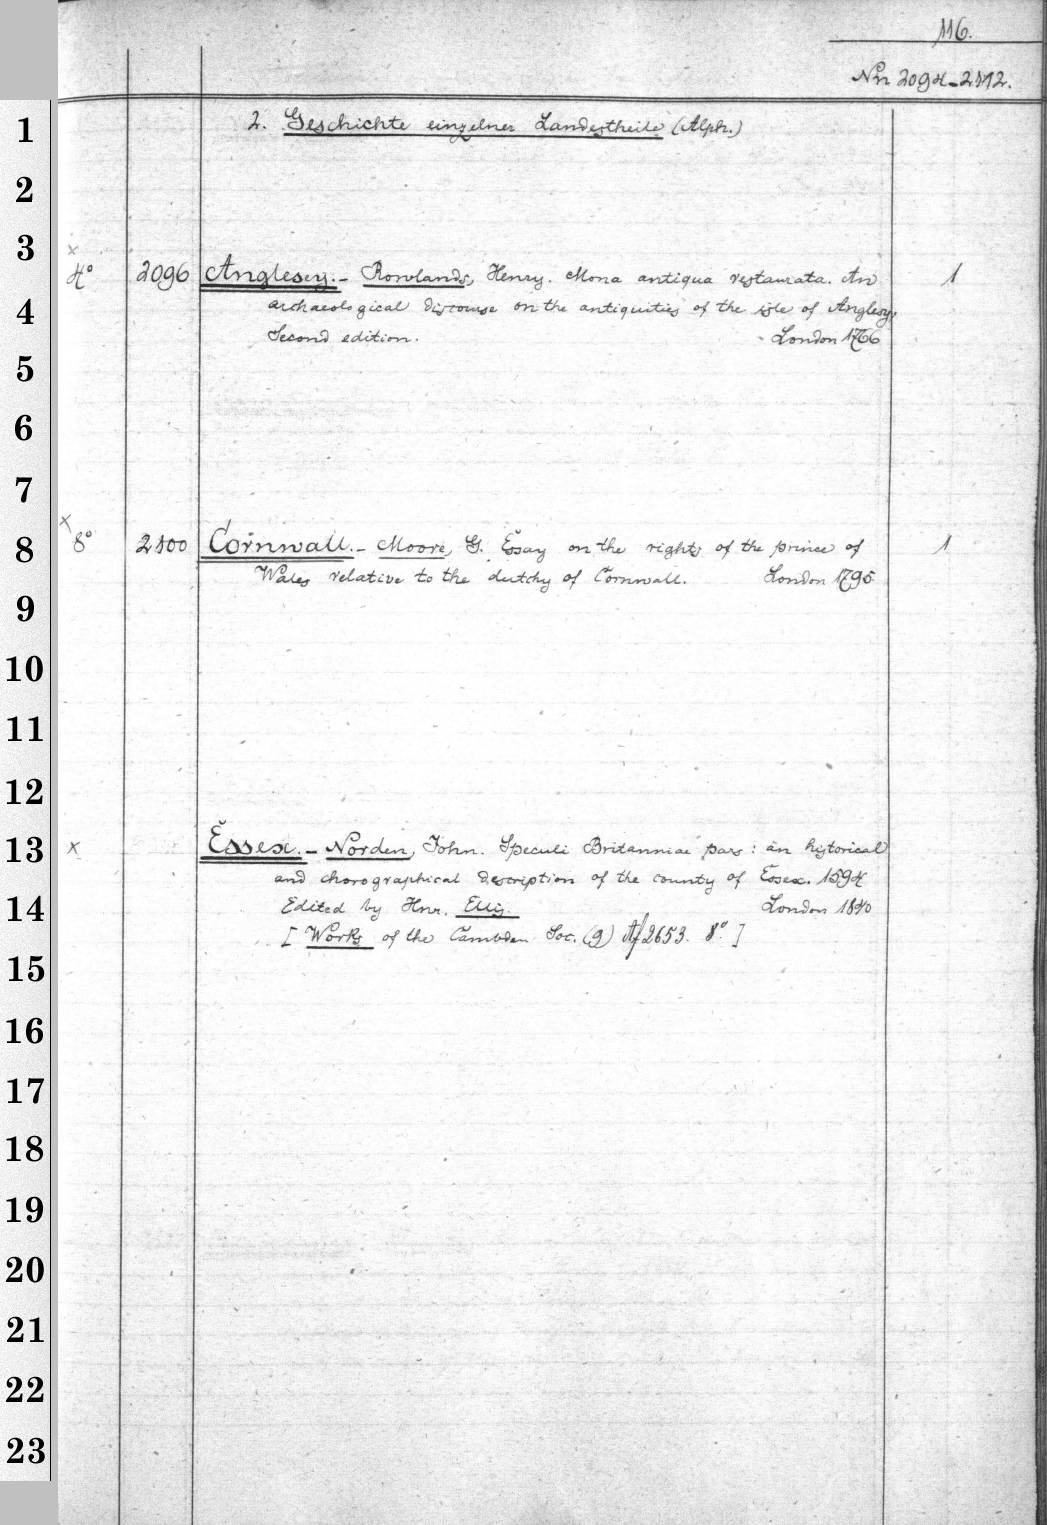 116.
Nrn 2094-2112.
1
2. Geschichte einzelner Landestheile (Alph.)
2
3
x
4° 2096 Anglesey.- Rowlands, Henry. Mona antiqua restaurata. An 1
4 archaeological discourse on the antiquities of the isle of Anglesy.
Second edition. London 1766
5
6
7
x
8 8° 2100 Cornwall.- Moore, G. Essay on the rights of the prince of 1
Wales relative to the dutchy of Cornwall. London 1795
9
10
11
12
13 x Essex.- Norden, John. Speculi Britanniae pars: an historical
and chorographical description of the county of Essex. 1594
14 Edited by Hnr. Ellis. London 1840
[Works of the Cambden Soc. (9) Af 2653. 8°.]
15
16
17
18
19
20
21
22
23